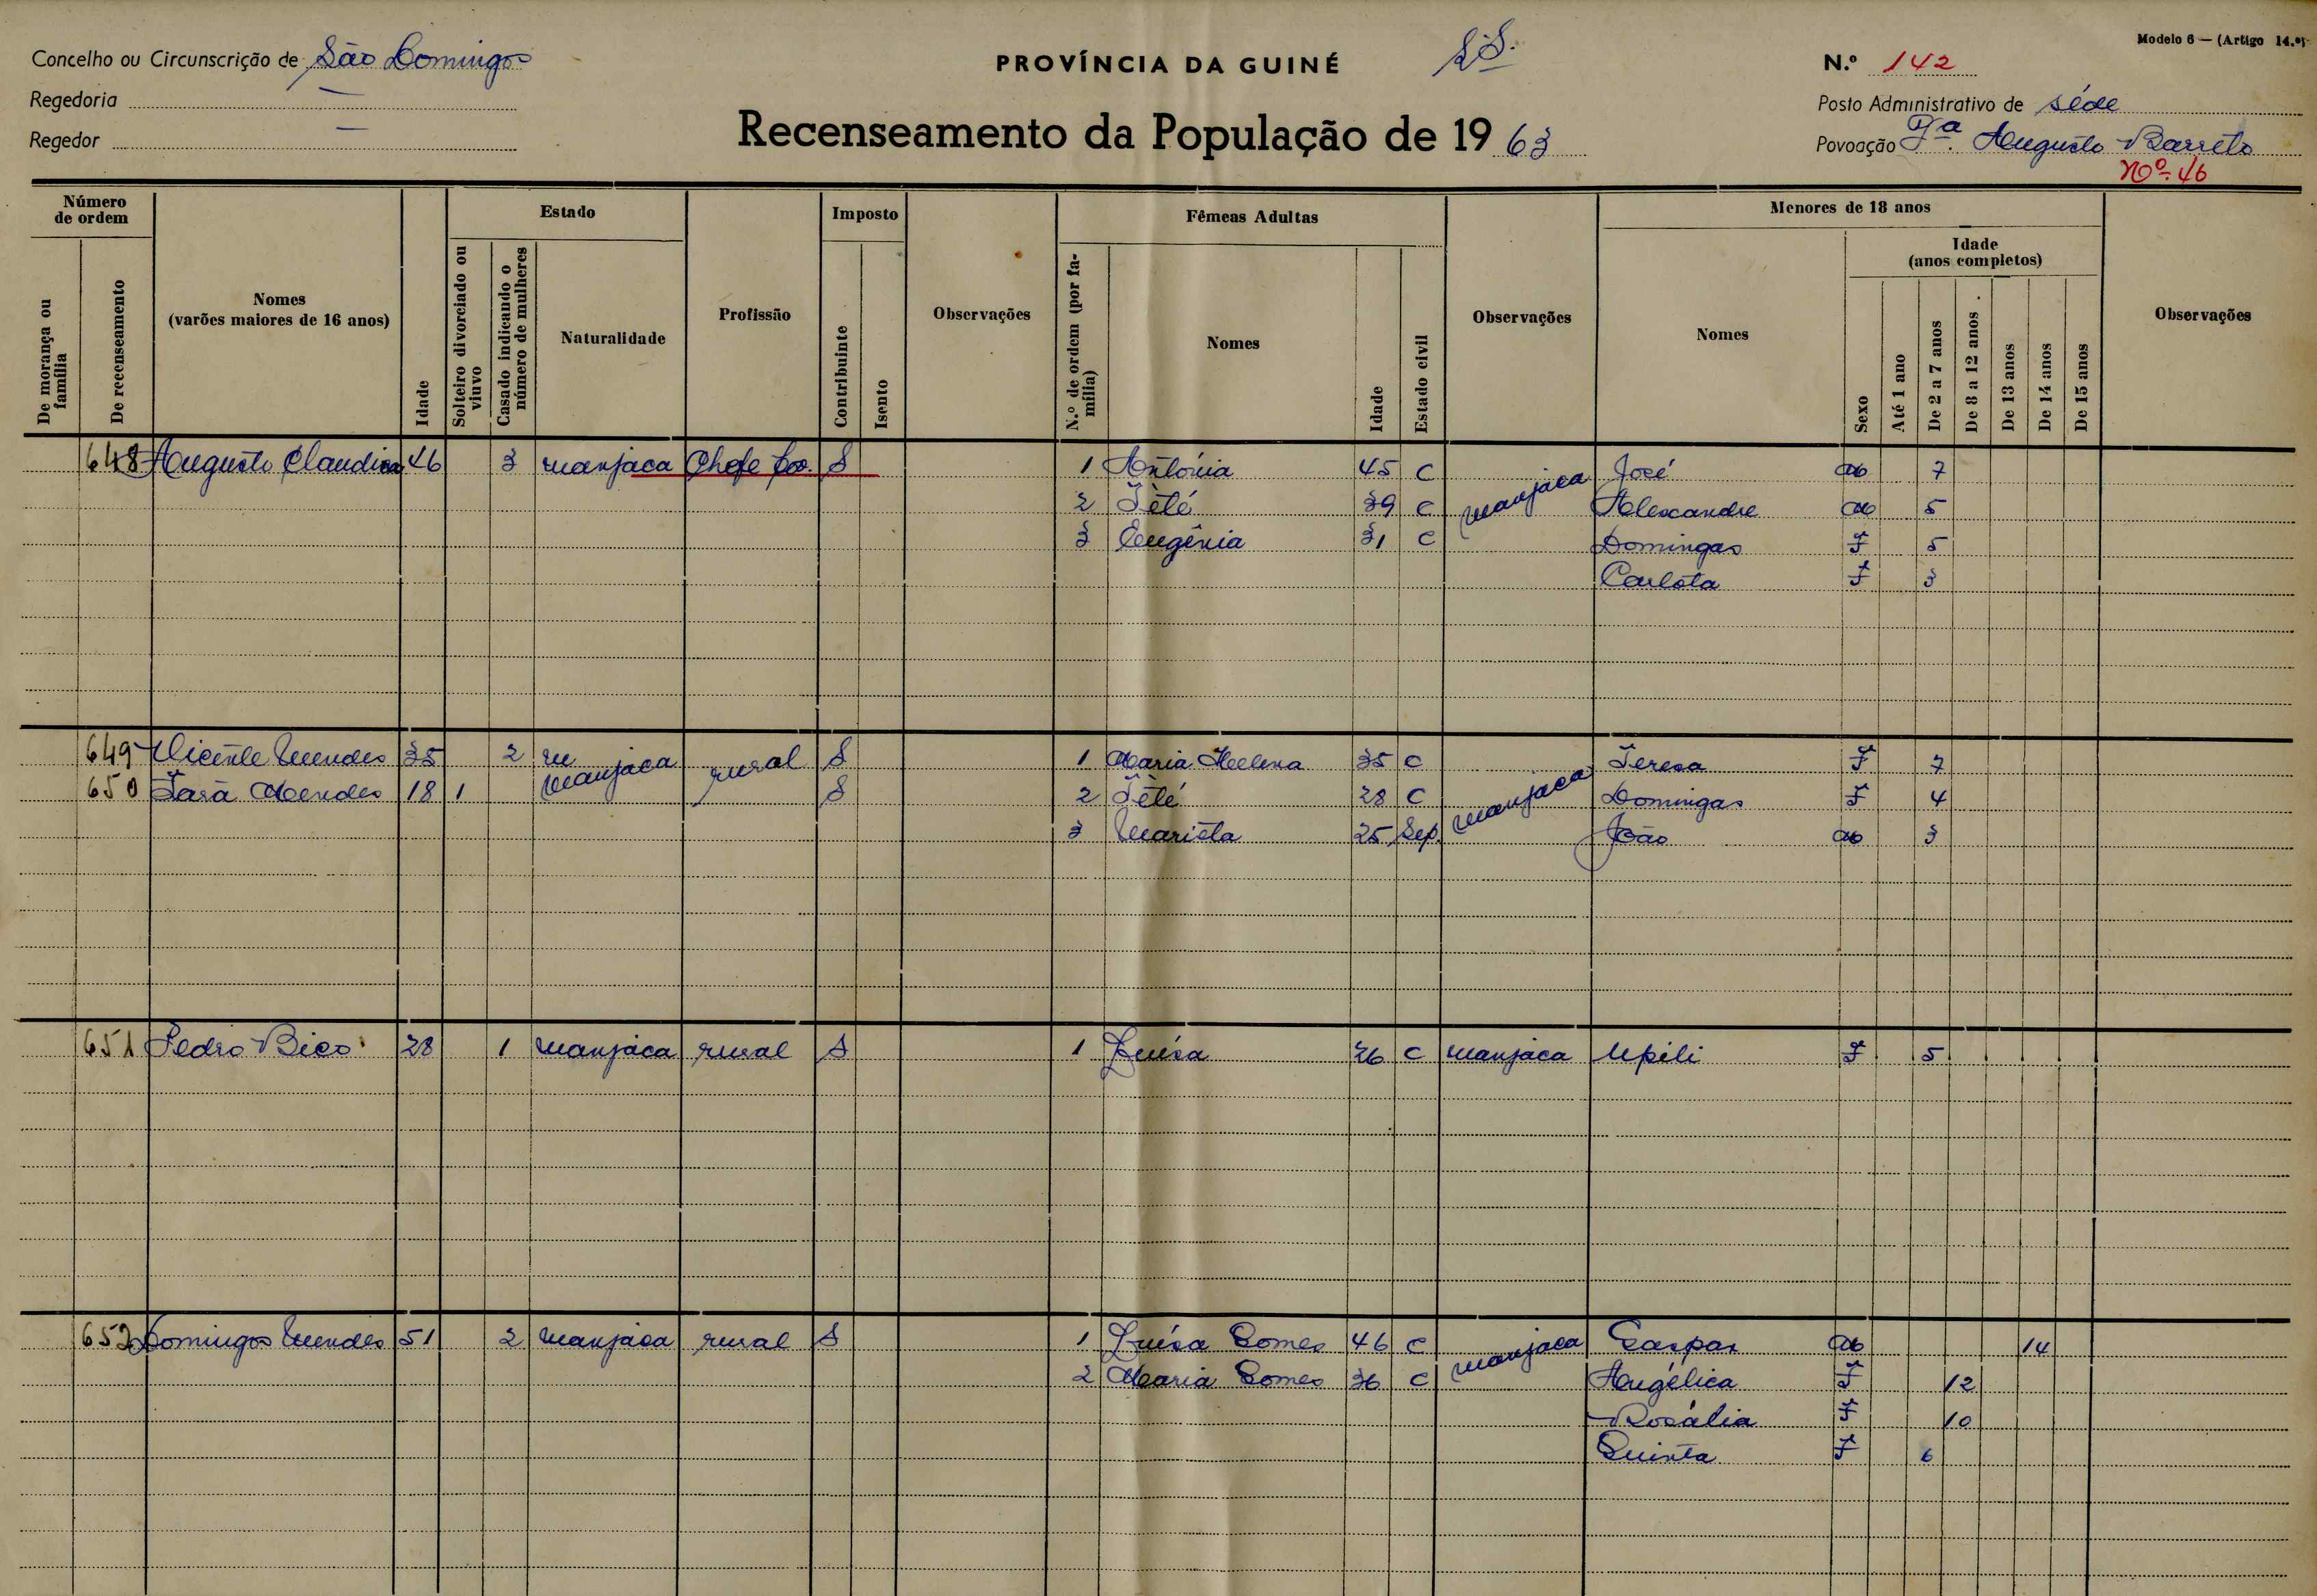 Concelho ou Circunscrição de São Domingos
PROVÍNCIA DA GUINÉ
S.S.
Modelo 6 — (Artigo 14.º)
N.º 142
Regedoria —
Posto Administrativo de séde
Regedor —
Recenseamento da População de 1963
Povoação Augusto Barreto
Nº. 46
Número de ordem
Estado
Imposto
Fêmeas Adultas
Menores de 18 anos
De morança ou família
De recenseamento
Nomes (varões maiores de 16 anos)
Idade
Solteiro divorciado ou viuvo
Casado indicando o número de mulheres
Naturalidade
Profissão
Contribuinte
Isento
Observações
N.º de ordem (por família)
Nomes
Idade
Estado civil
Observações
Nomes
Sexo
Idade (anos completos)
Até 1 ano
De 2 a 7 anos
De 8 a 12 anos
De 13 anos
De 14 anos
De 15 anos
Observações
648 Augusto 46 3 manjaca Chefe S 1 Antónia 45 C manjaca José M 7
2 Tété 39 C Alexandre M 5
3 Eugênia 31 C Domingas F 5
Carlota F 3
649 Vicente Mendes 35 2 manjaca rural S 1 Maria Helena 35 C manjaca Teresa F 7
650 Tará Mendes 18 1 S 2 Tété 28 C Domingas F 4
3 Marieta 25 Sep. João M 3
651 Pedro Bico 28 1 manjaca rural S 1 Luísa 26 C manjaca Upili F 5
652 Domingos Mendes 51 2 manjaca rural S 1 Luísa Gomes 46 C manjaca Gaspar M 14
2 Maria Gomes 36 C Angélica F 12
Rosália F 10
Quinta F 6